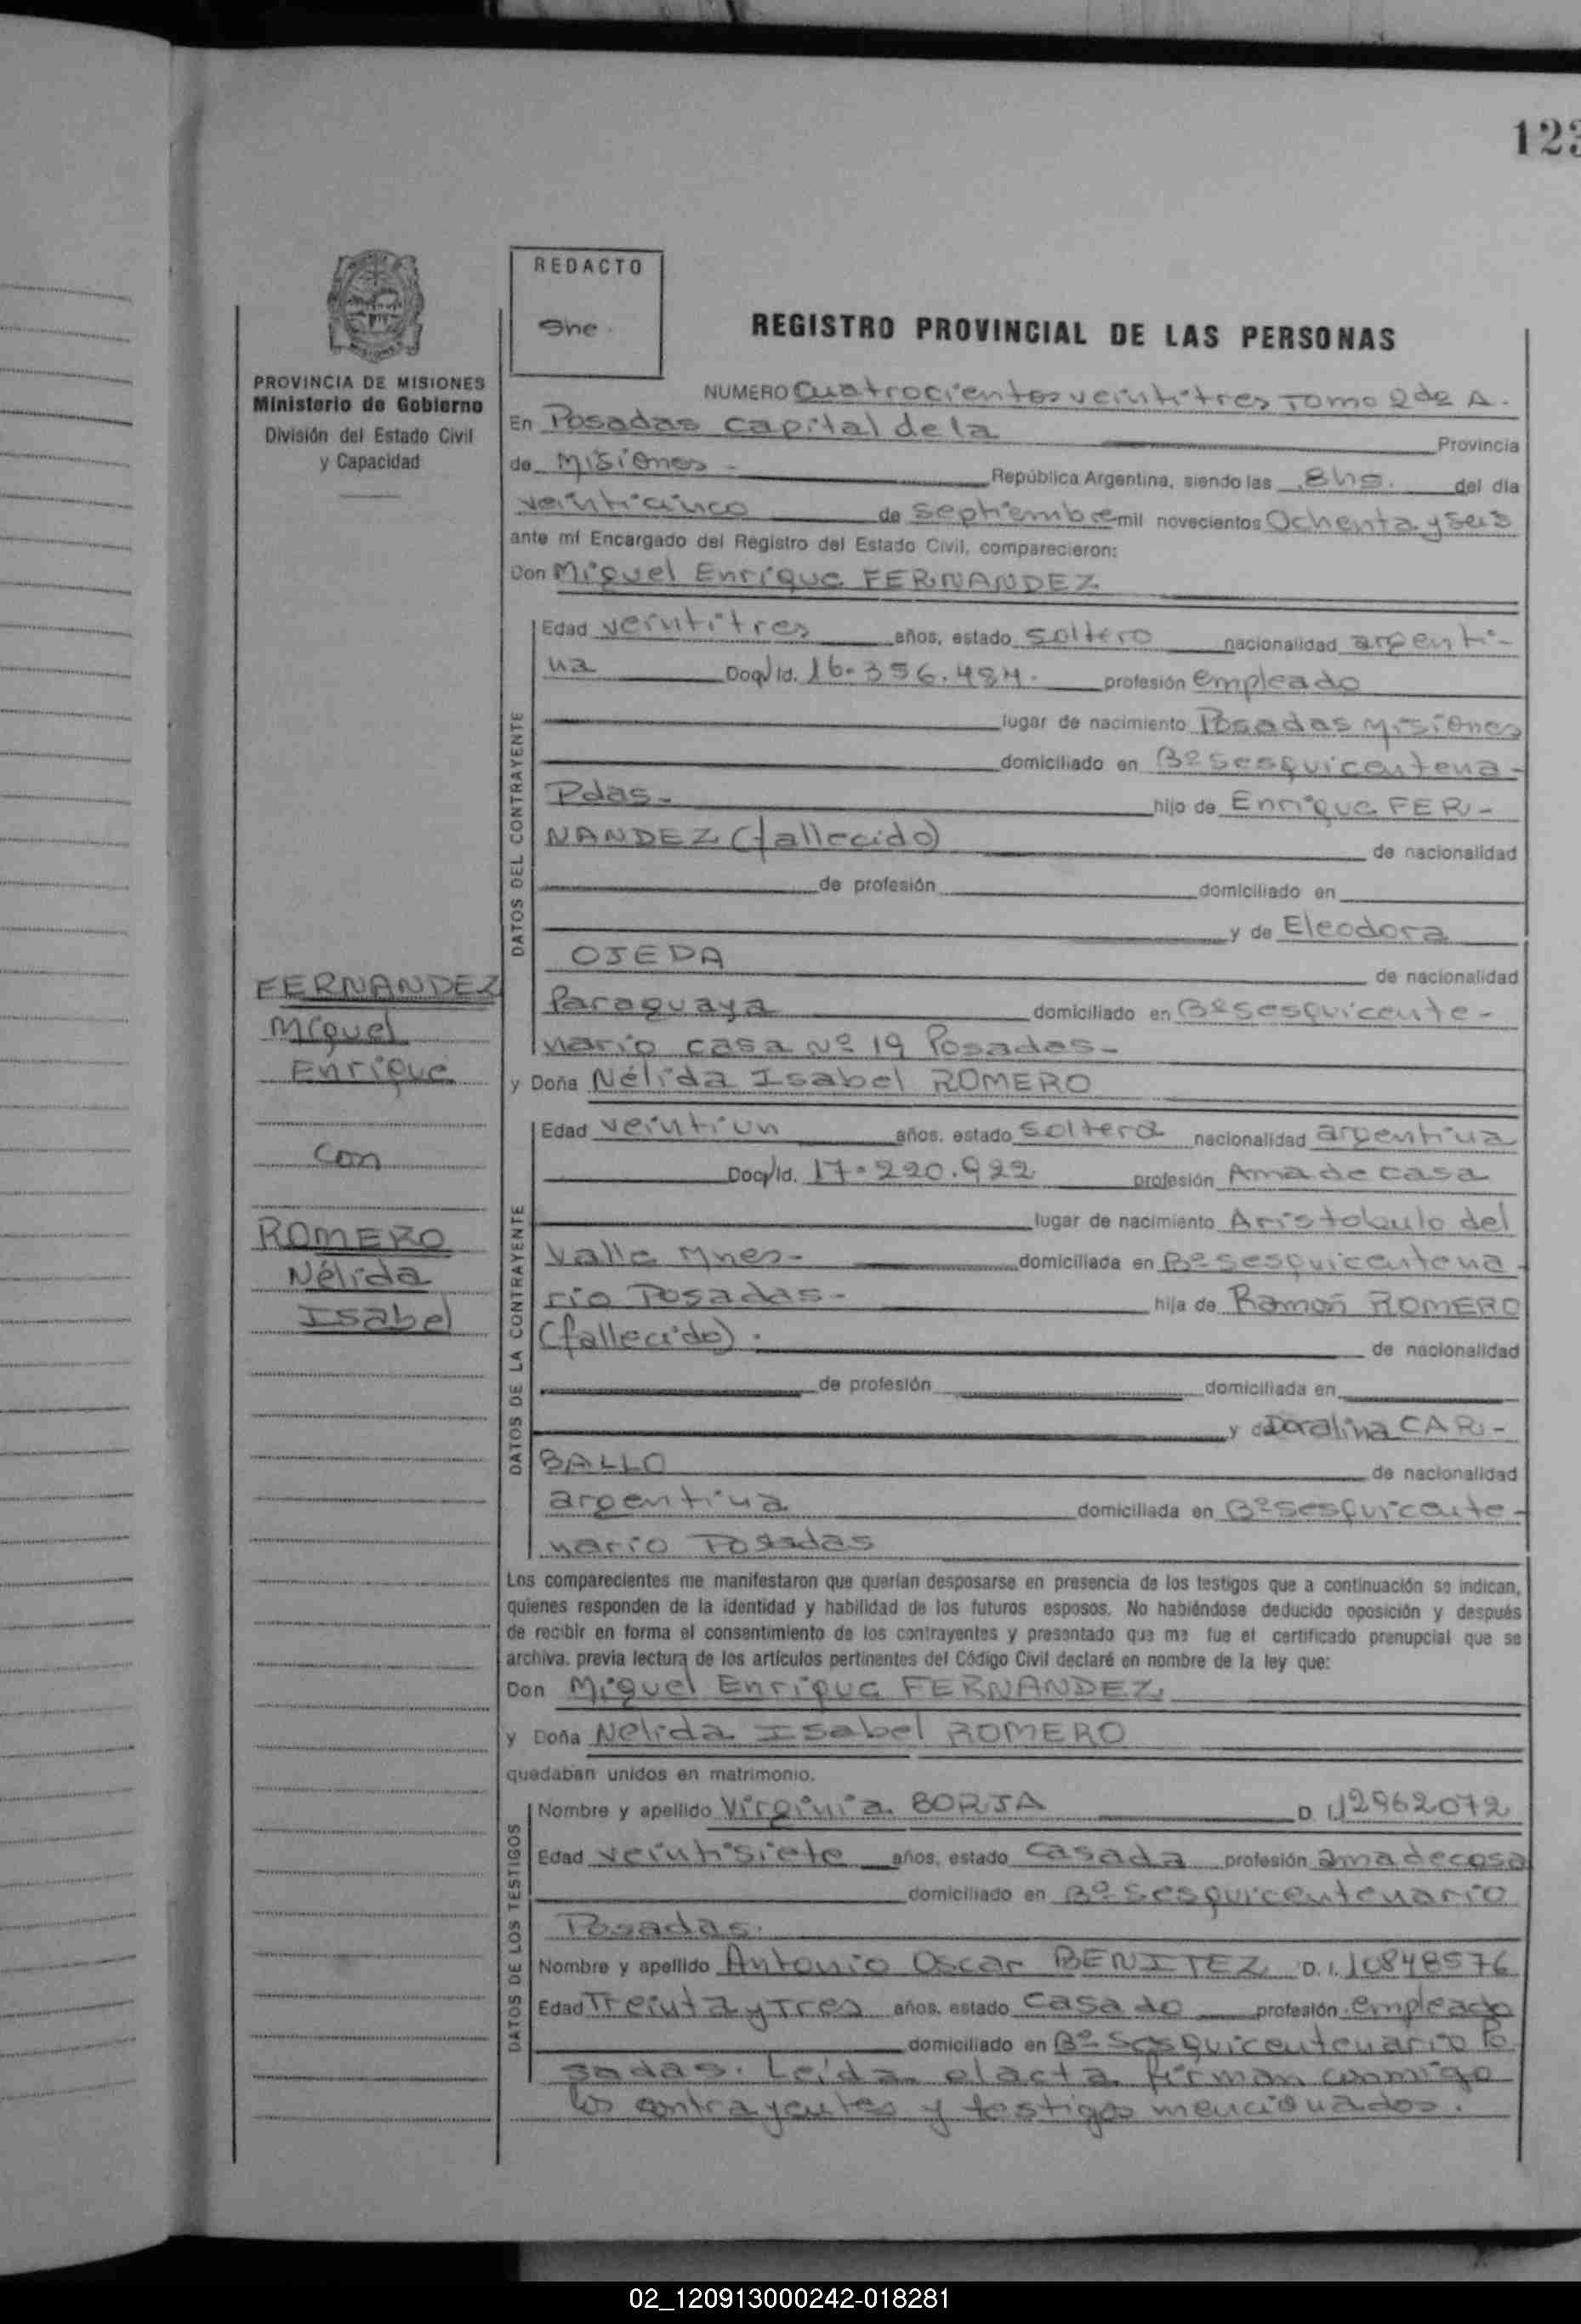 123
REDACTO
She.
REGISTRO PROVINCIAL DE LAS PERSONAS
PROVINCIA DE MISIONES
Ministerio de Gobierno
División del Estado Civil
y Capacidad
NUMERO Cuatrocientos veintitres Tomo 2 de A.
En Posadas capital de la Provincia
de Misiones - República Argentina, siendo las 8hs. del día
veinticinco de septiembre mil novecientos Ochenta y seis
ante mí Encargado del Registro del Estado Civil, comparecieron:
Don Miguel Enrique FERNANDEZ
DATOS DEL CONTRAYENTE
Edad veintitres años, estado soltero nacionalidad argenti-
na Doc/Id. 16.356.484. profesión empleado
lugar de nacimiento Posadas Misiones
domiciliado en Bº Sesquicentena-
Pdas.- hijo de Enrique FER-
NANDEZ (fallecido) de nacionalidad
de profesión domiciliado en
y de Eleodora
OJEDA de nacionalidad
Paraguaya domiciliado en Bº Sesquicente-
nario casa Nº 19 Posadas-
FERNANDEZ
Miguel
Enrique
con
ROMERO
Nélida
Isabel
y Doña Nélida Isabel ROMERO
DATOS DE LA CONTRAYENTE
Edad veintiun años, estado soltera nacionalidad argentina
Doc/Id. 17.220.922 profesión Ama de casa
lugar de nacimiento Aristobulo del
Valle Mnes- domiciliada en Bº Sesquicentena-
rio Posadas- hija de Ramon ROMERO
(fallecido). de nacionalidad
de profesión domiciliada en
y de Doralina CAR-
BALLO de nacionalidad
argentina domiciliada en Bº Sesquicente-
nario Posadas
Los comparecientes me manifestaron que querían desposarse en presencia de los testigos que a continuación se indican,
quienes responden de la identidad y habilidad de los futuros esposos. No habiéndose deducido oposición y después
de recibir en forma el consentimiento de los contrayentes y presentado que me fue el certificado prenupcial que se
archiva. previa lectura de los artículos pertinentes del Código Civil declaré en nombre de la ley que:
Don Miguel Enrique FERNANDEZ
y Doña Nelida Isabel ROMERO
quedaban unidos en matrimonio.
DATOS DE LOS TESTIGOS
Nombre y apellido Virginia BORJA D. I. 12962072
Edad veintisiete años, estado casada profesión ama de casa
domiciliado en Bº Sesquicentenario
Posadas.
Nombre y apellido Antonio Oscar BENITEZ D. I. 10848576
Edad Treinta y Tres años, estado casado profesión empleado
domiciliado en Bº Sesquicentenario Po
sadas. Leída el acta firman conmigo
los contrayentes y testigos mencionados.
02_120913000242-018281